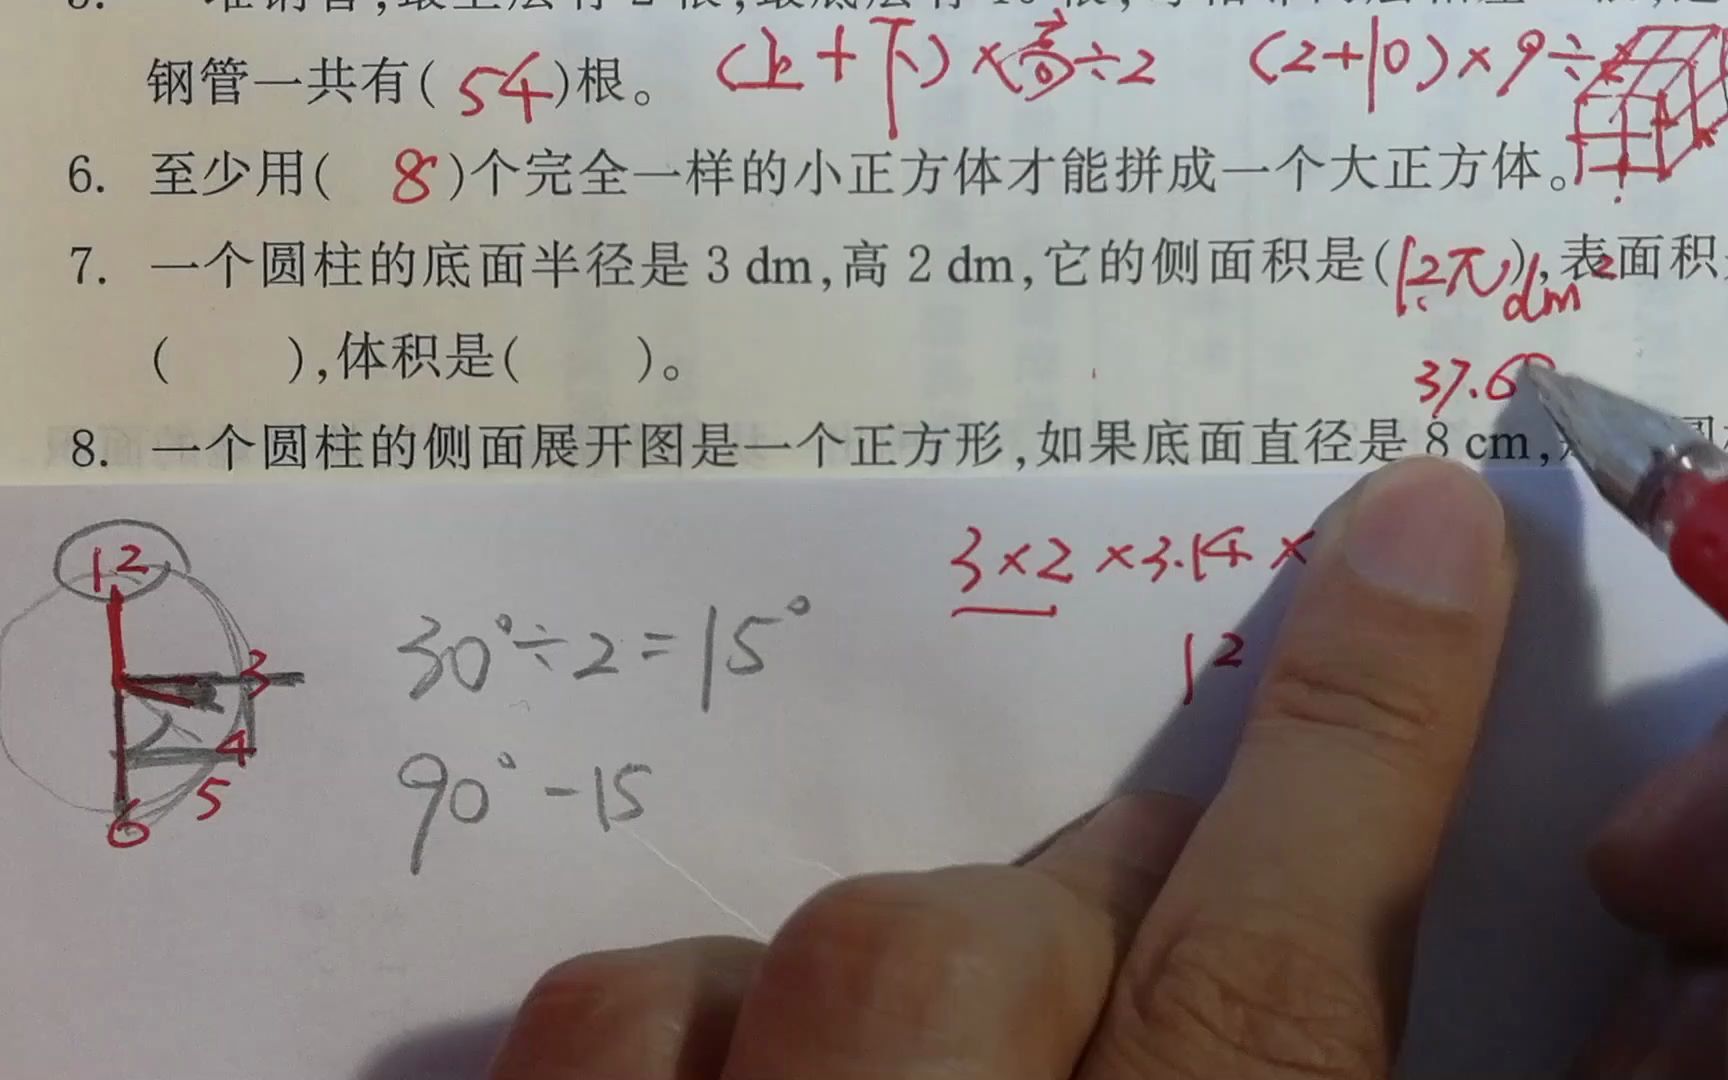 钢管一共有(54)根。 (上+下)×高÷2 (2+10)×9÷2
6. 至少用( 8 )个完全一样的小正方体才能拼成一个大正方体。
7. 一个圆柱的底面半径是 3 dm,高 2 dm,它的侧面积是(12π),表面积
dm²
( ),体积是( )。
37.6
8. 一个圆柱的侧面展开图是一个正方形,如果底面直径是 8 cm,
12
3×2×3.14×
30°÷2=15°
12
3
4
90°-15
5
6